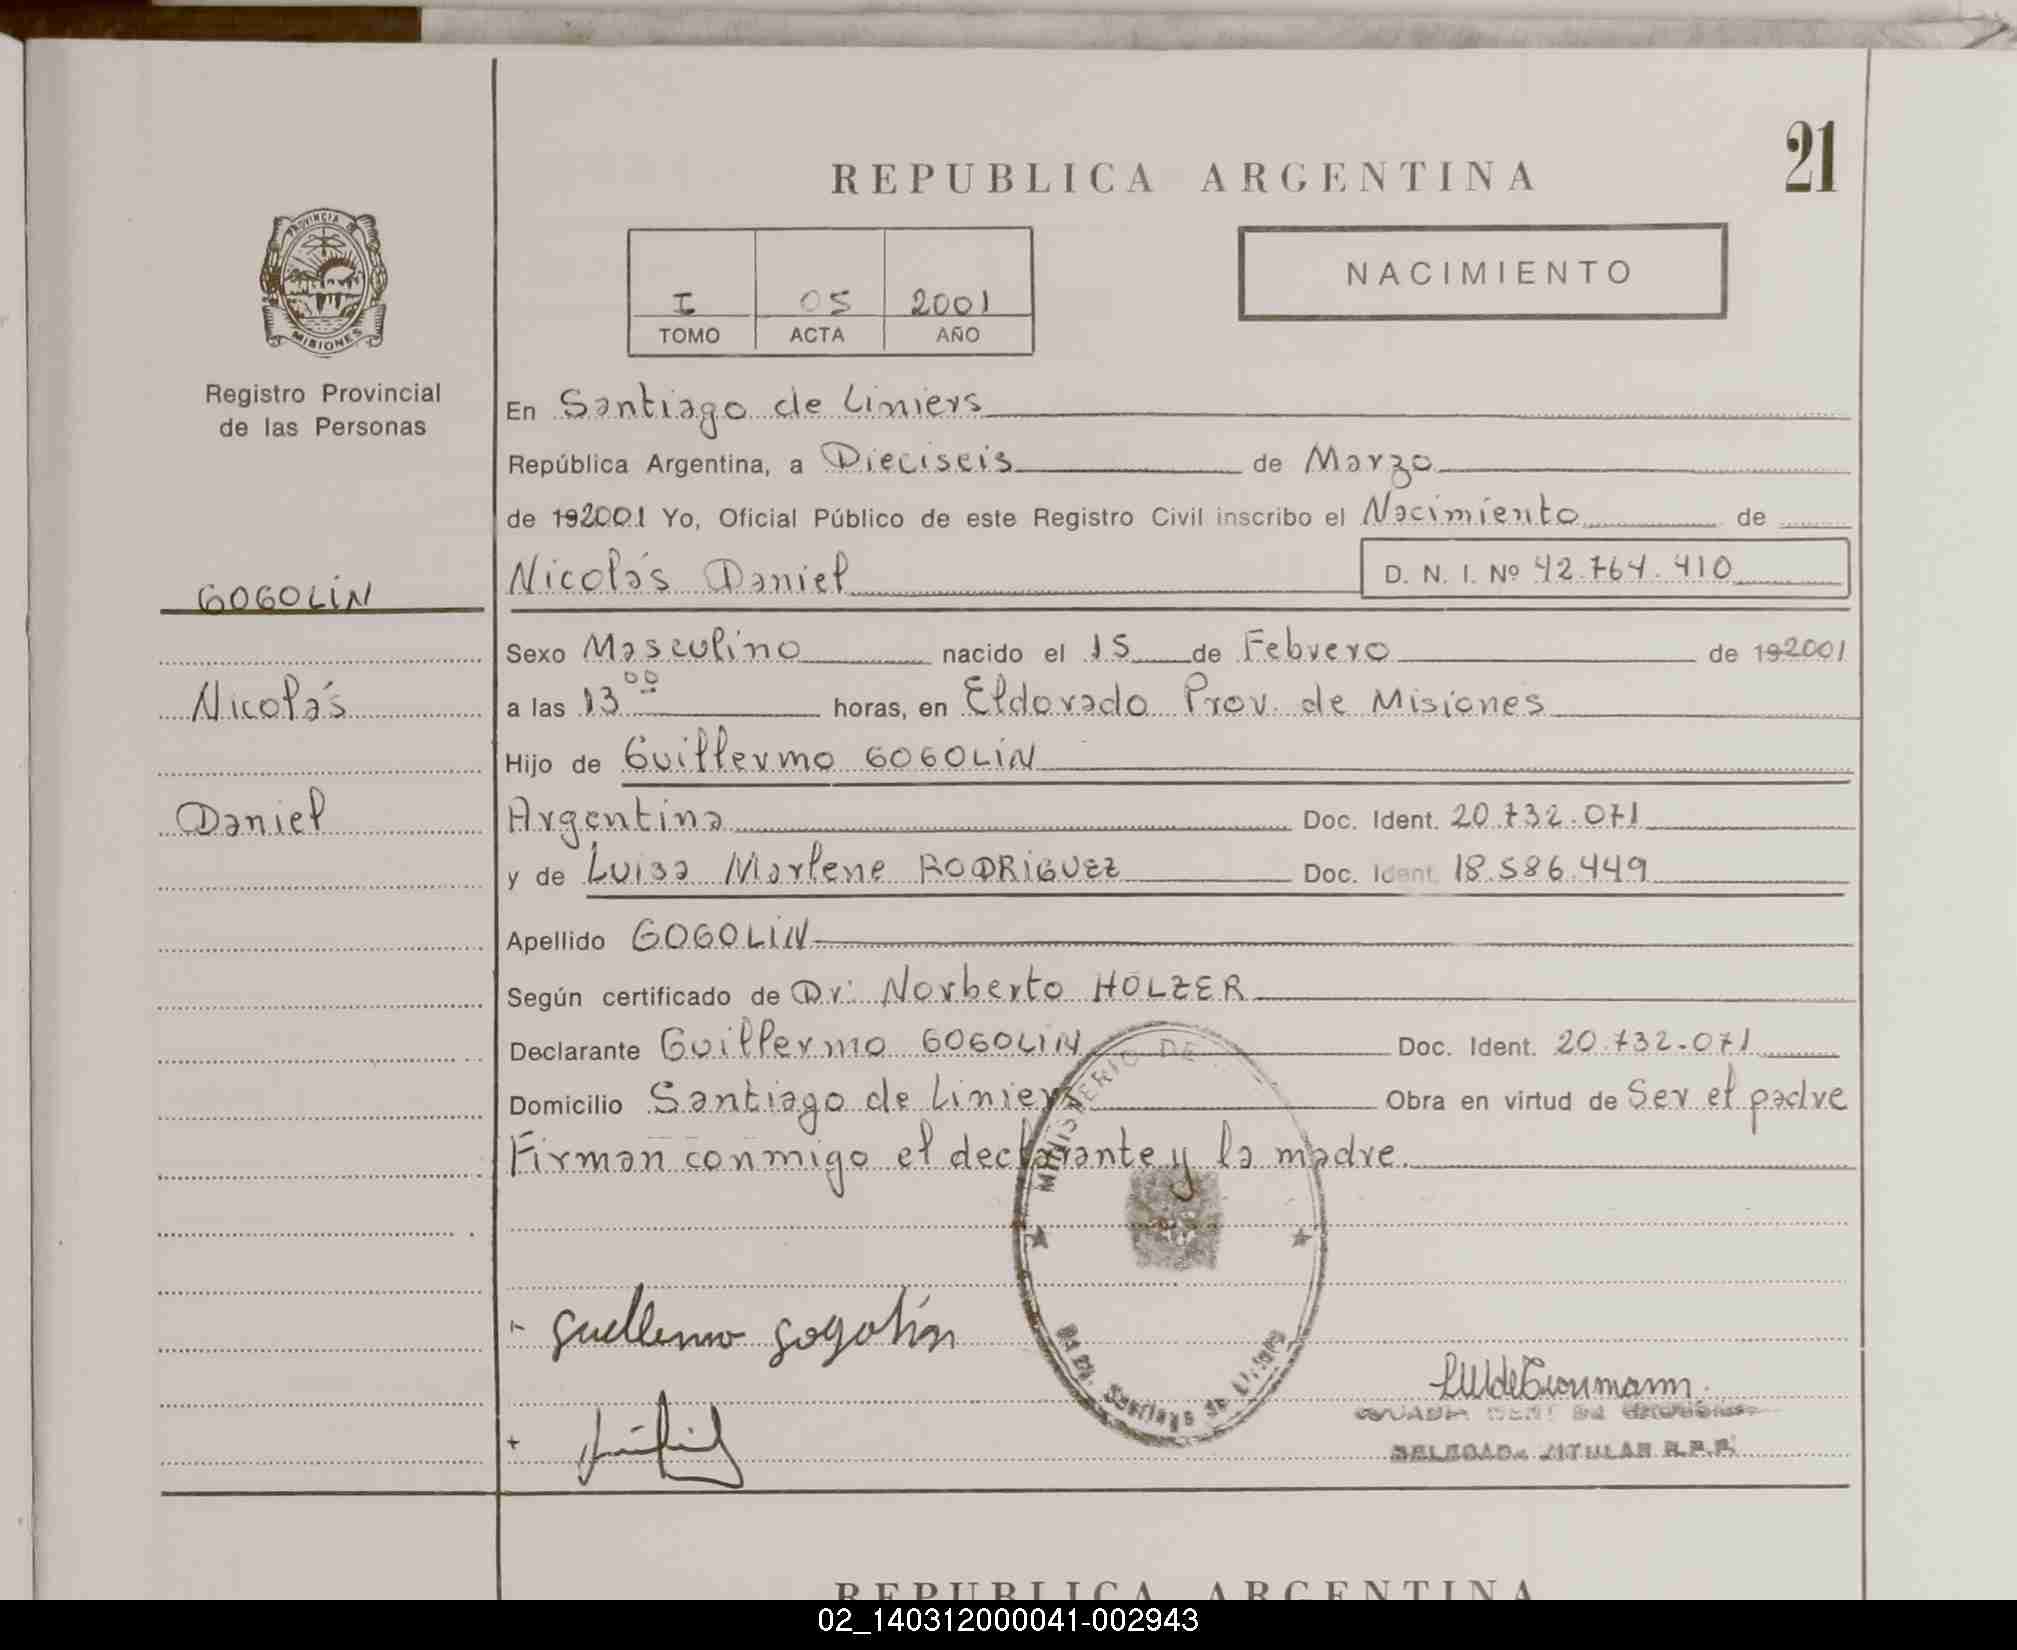 21
REPUBLICA ARGENTINA
PROVINCIA DE
MISIONES
I 05 2001
TOMO ACTA AÑO
NACIMIENTO
Registro Provincial
de las Personas
En Santiago de Liniers
República Argentina, a Dieciseis de Marzo
de 192001 Yo, Oficial Público de este Registro Civil inscribo el Nacimiento de
GOGOLIN
Nicolás Daniel D. N. I. Nº 42.764.410
Sexo Masculino nacido el 15 de Febrero de 192001
Nicolás
a las 13 00 horas, en Eldorado Prov. de Misiones
Hijo de Guillermo GOGOLIN
Daniel
Argentina Doc. Ident. 20.732.071
y de Luisa Marlene RODRIGUEZ Doc. Ident. 18.586.449
Apellido GOGOLIN
Según certificado de Dr. Norberto HOLZER
Declarante Guillermo GOGOLIN Doc. Ident. 20.732.071
Domicilio Santiago de Liniers Obra en virtud de Ser el padre
Firman conmigo el declarante y la madre
MINISTERIO DE
Santiago de Liniers
Guillermo Gogolin
DELEGADA TITULAR R.P.P.
REPUBLICA ARGENTINA
02_140312000041-002943